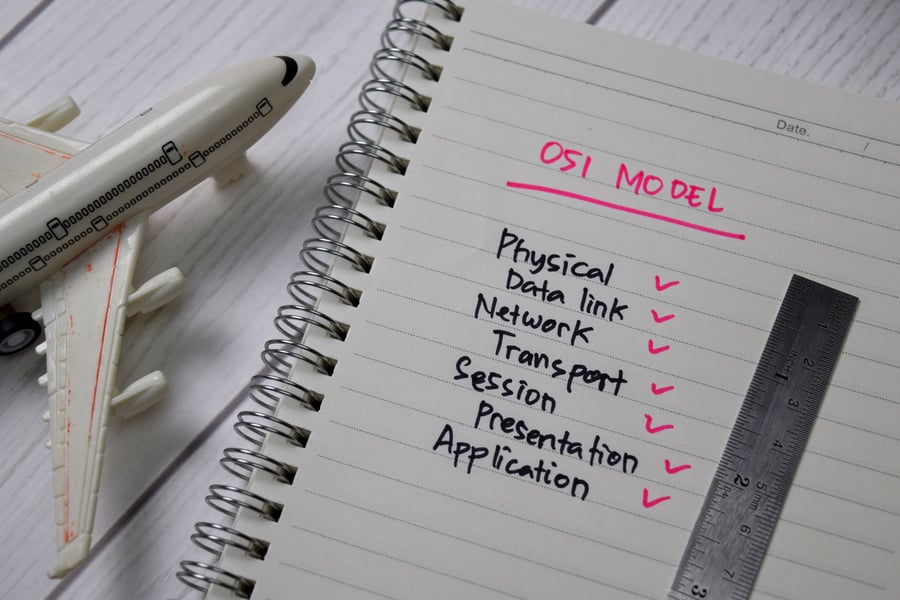 Date.
OSI MODEL
Physical
Data link
Network
Transport
Session
Presentation
Application
1
2
3
4
5
6
7
1
2
3